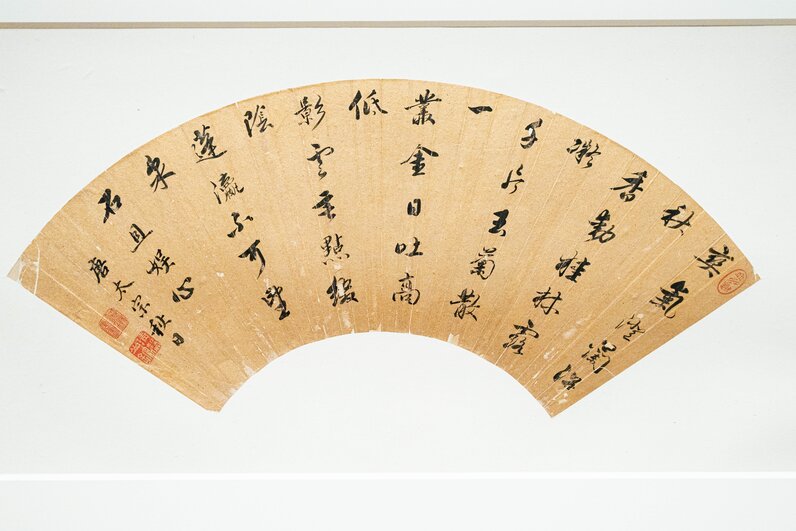 爽氣澄蘭沼
秋
香動桂林露
凝
千片玉菊散
一
叢金日吐高
低
影雲垂點綴
陰
蓬瀛不可望
泉
石且娛心
唐太宗秋日